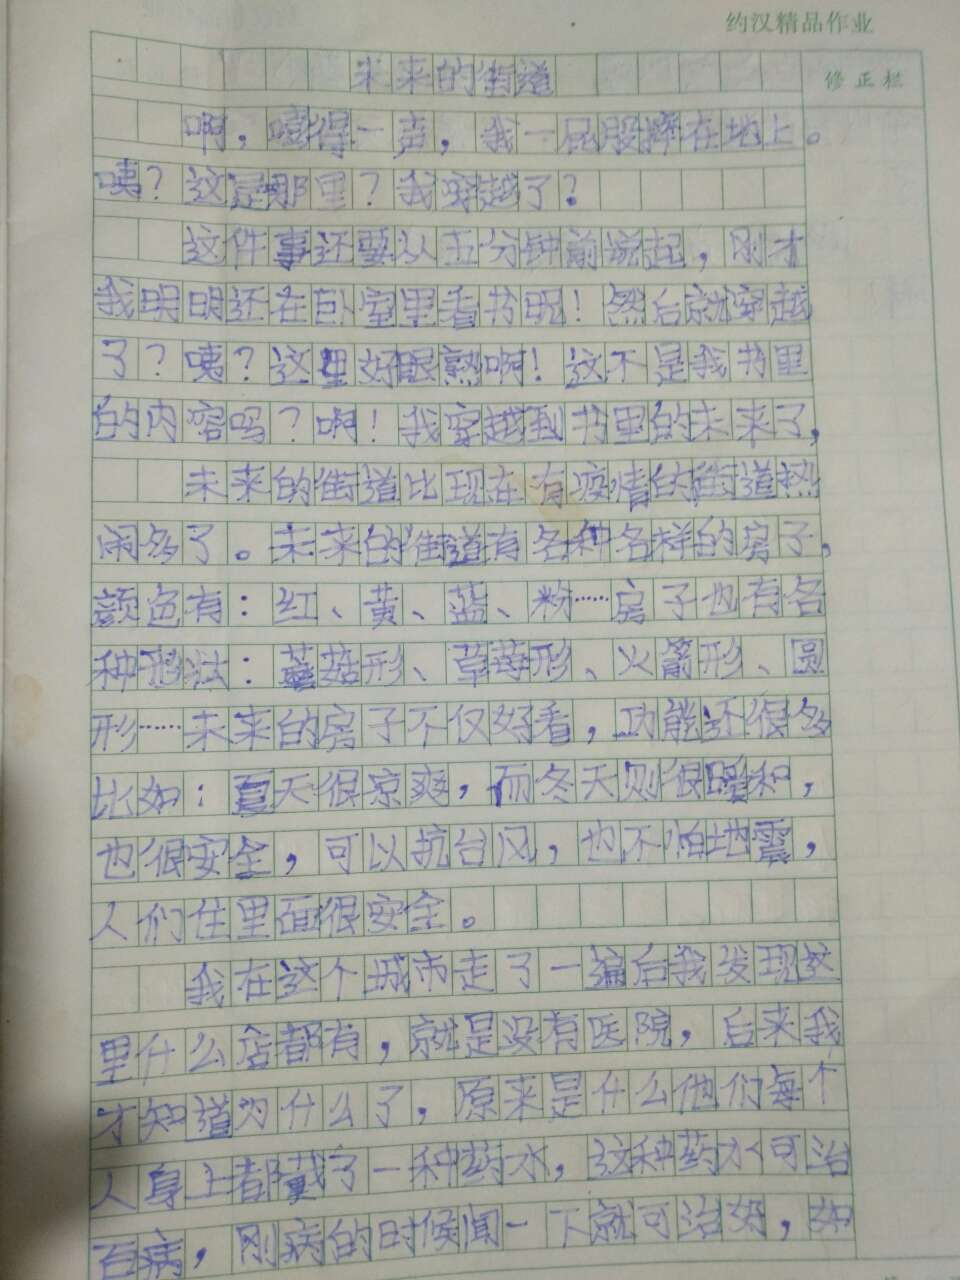 约汉精品作业
修正栏
未来的街道
啊，嘭得一声，我一屁股摔在地上。
咦？这是那里？我穿越了？
这件事还要从五分钟前说起，刚才
我明明还在卧室里看书呢！然后就穿越
了？咦？这里好眼熟啊！这不是我书里
的内容吗？啊！我穿越到书里的未来了，
未来的街道比现在有疫情的街道热
闹多了。未来的街道有各种各样的房子，
颜色有：红、黄、蓝、粉……房子也有各
种形状：蘑菇形、草莓形、火箭形、圆
形……未来的房子不仅好看，功能还很多
比如：夏天很凉爽，而冬天则很暖和，
也很安全，可以抗台风，也不怕地震，
人们住里面很安全。
我在这个城市走了一遍后我发现这
里什么店都有，就是没有医院，后来我
才知道为什么了，原来是什么他们每个
人身上都藏了一种药水，这种药水可治
百病，刚病的时候闻一下就可治好，如